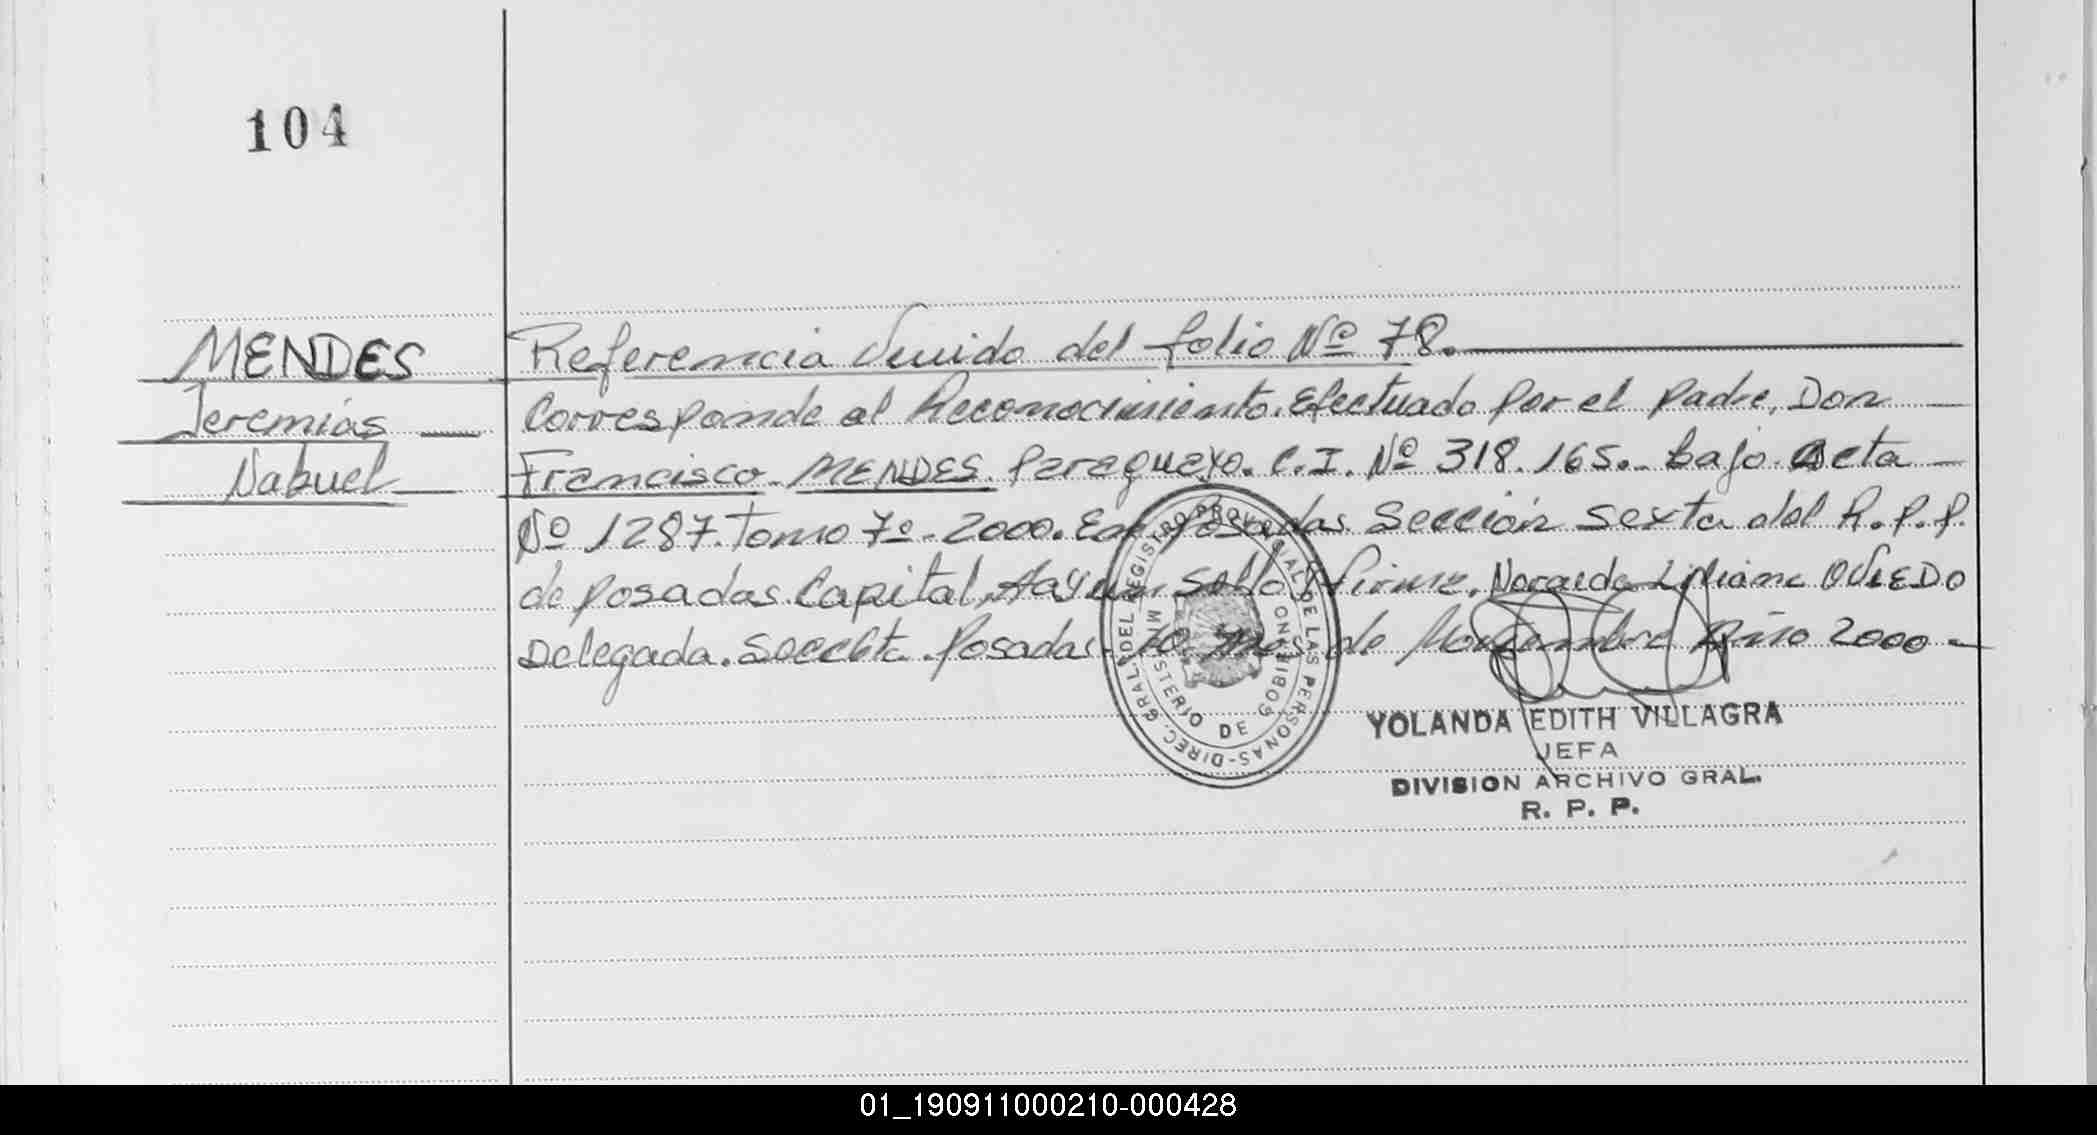 104
MENDES
Jeremías
Nahuel
Referencia Venido del folio Nº 78.
Corresponde al Reconocimiento Efectuado por el padre, Don
Francisco MENDES. Paraguayo. C.I. Nº 318.165. bajo Acta
Nº 1287. Tomo 7º. 2000. En Posadas Sección Sexta del R.P.P.
de Posadas Capital, Hay un Sello y firma, Liliana OVIEDO
Delegada. Posadas, 10 de Año 2000
DIREC. GRAL. DEL REGISTRO PROVINCIAL DE LAS PERSONAS
MINISTERIO DE GOBIERNO
YOLANDA EDITH VILLAGRA
JEFA
DIVISION ARCHIVO GRAL.
R. P. P.
01_190911000210-000428